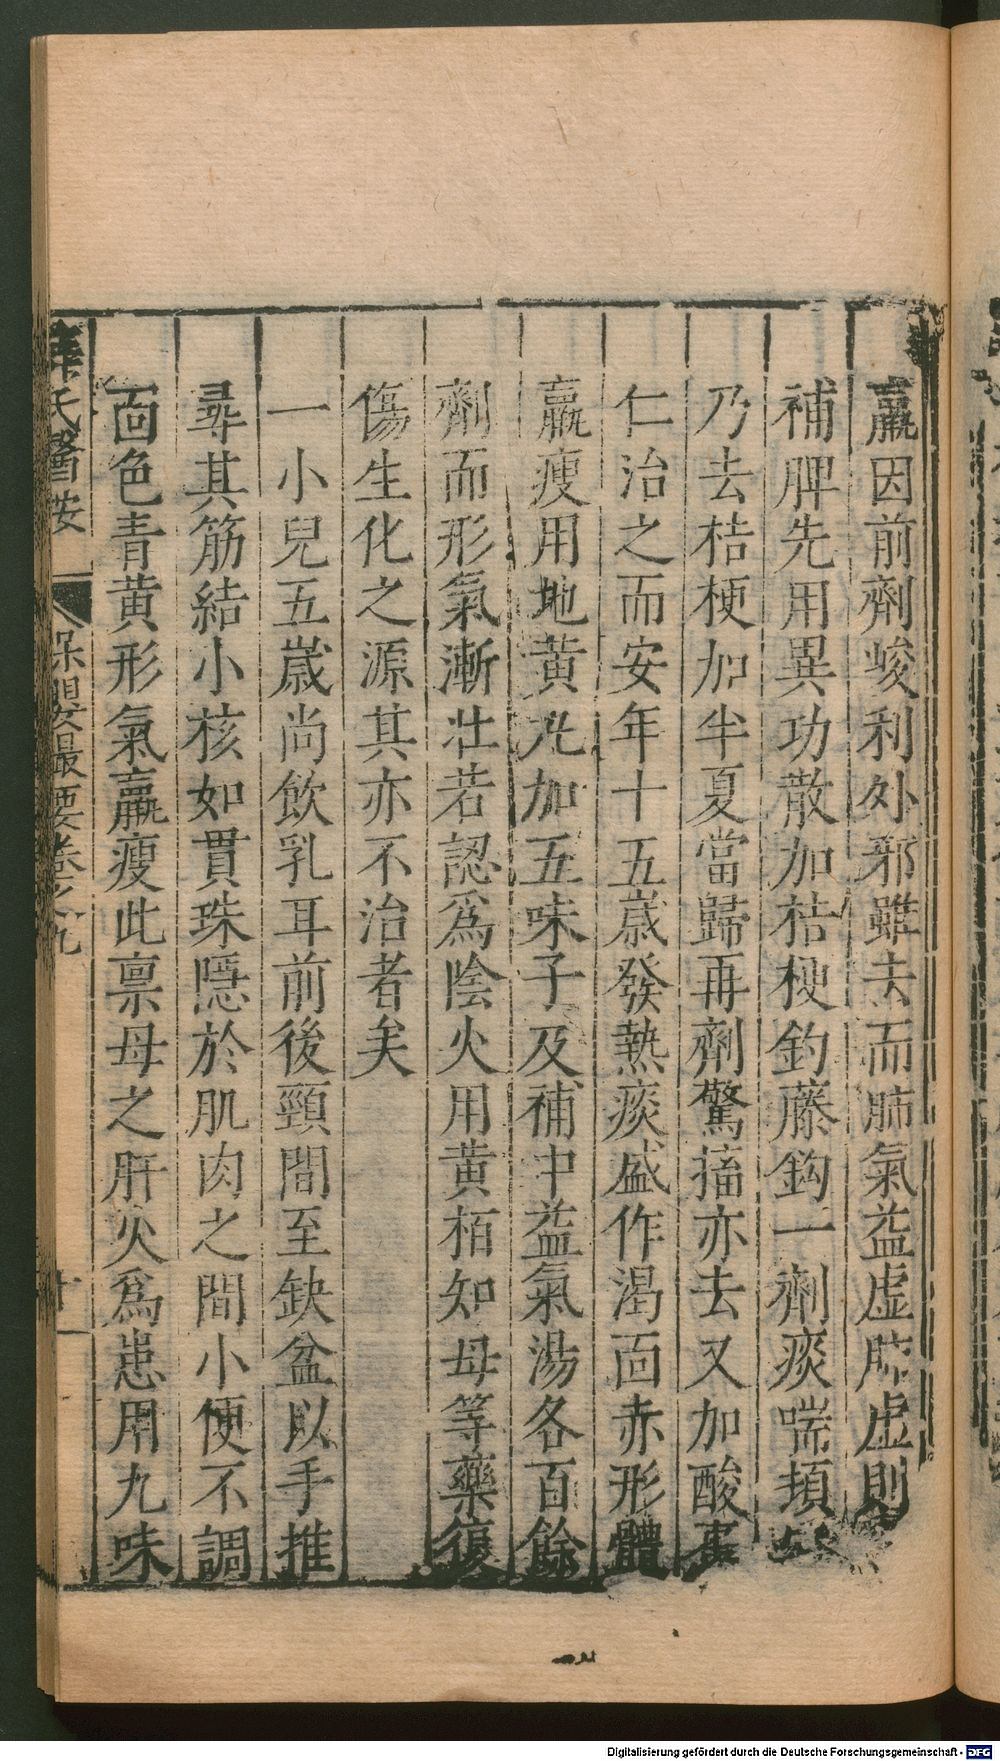 羸因前劑峻利外邪雖去而肺氣益虛肺虛則
補脾先用異功散加桔梗鈎藤鈎一劑痰喘頓
乃去桔梗加半夏當歸再劑驚搐亦去又加酸棗
仁治之而安年十五歲發熱痰盛作渴面赤形體
羸瘦用地黃丸加五味子及補中益氣湯各百餘
劑而形氣漸壯若認爲陰火用黃栢知母等藥復
傷生化之源其亦不治者矣
一小兒五歲尚飲乳耳前後頸間至缺盆以手推
尋其筋結小核如貫珠隱於肌肉之間小便不調
面色青黃形氣羸瘦此禀母之肝火爲患用九味
薛氏醫按 保嬰撮要卷之九 十一
Digitalisierung gefördert durch die Deutsche Forschungsgemeinschaft - DFG